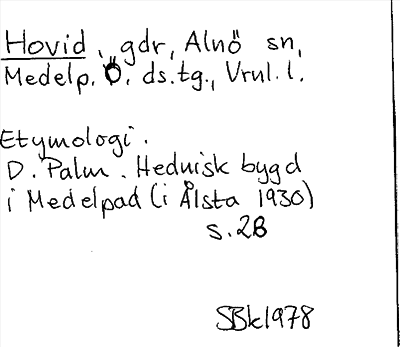 Hovid, gdr, Alnö sn,
Medelp. Ö. ds.tg., Vrul. l.
Etymologi.
D. Palm. Hednisk bygd
i Medelpad (i Ålsta 1930)
s. 28
SBk 1978